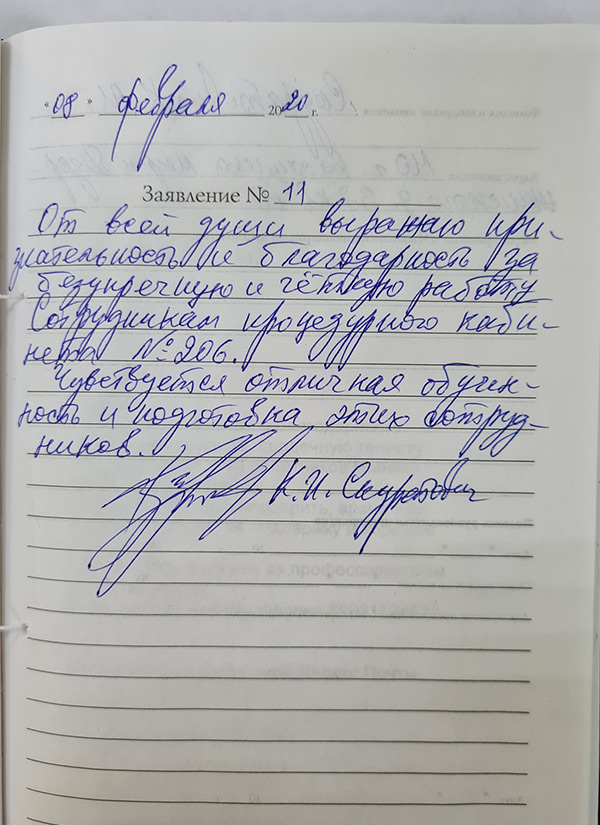 "08" февраля 2020 г.
Заявление № 11
От всей души выражаю при-
знательность и благодарность за
безупречную и чёткую работу
Сотрудникам процедурного каби-
нета № 206.
Чувствуется отличная обучен-
ность и подготовка этих сотруд-
ников.
К.И. Скуратович